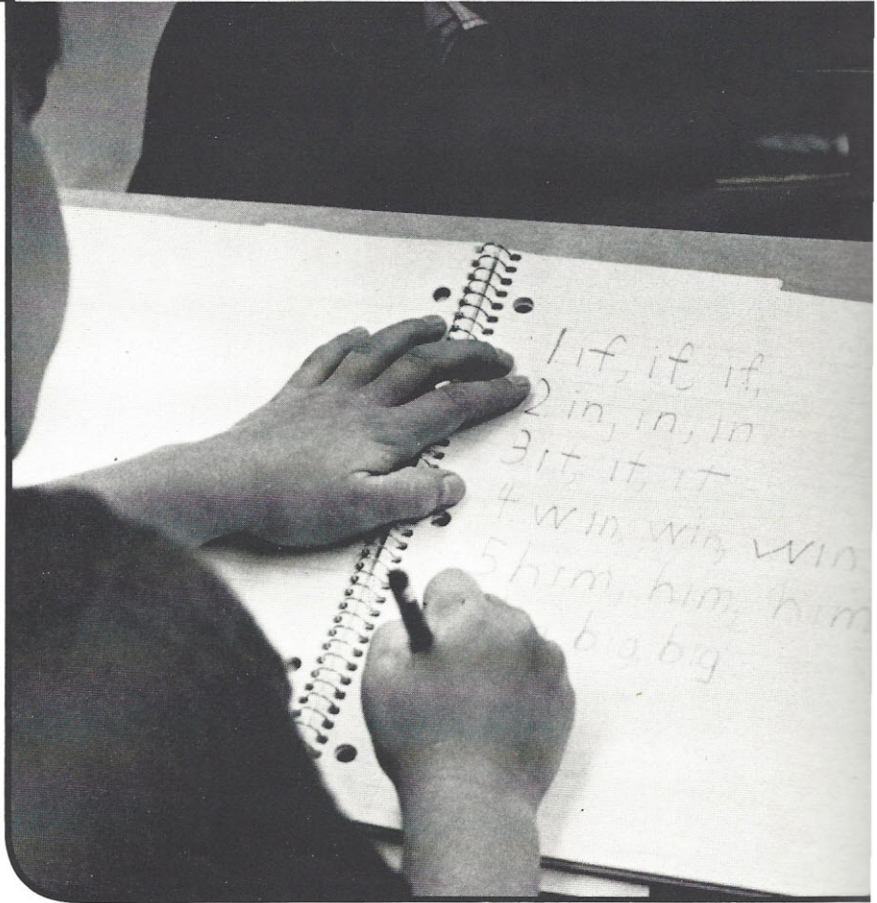 1 if, if, if,
2 in, in, in
3 it, it, it
4 win, win, win
5 him, him, him
big, big